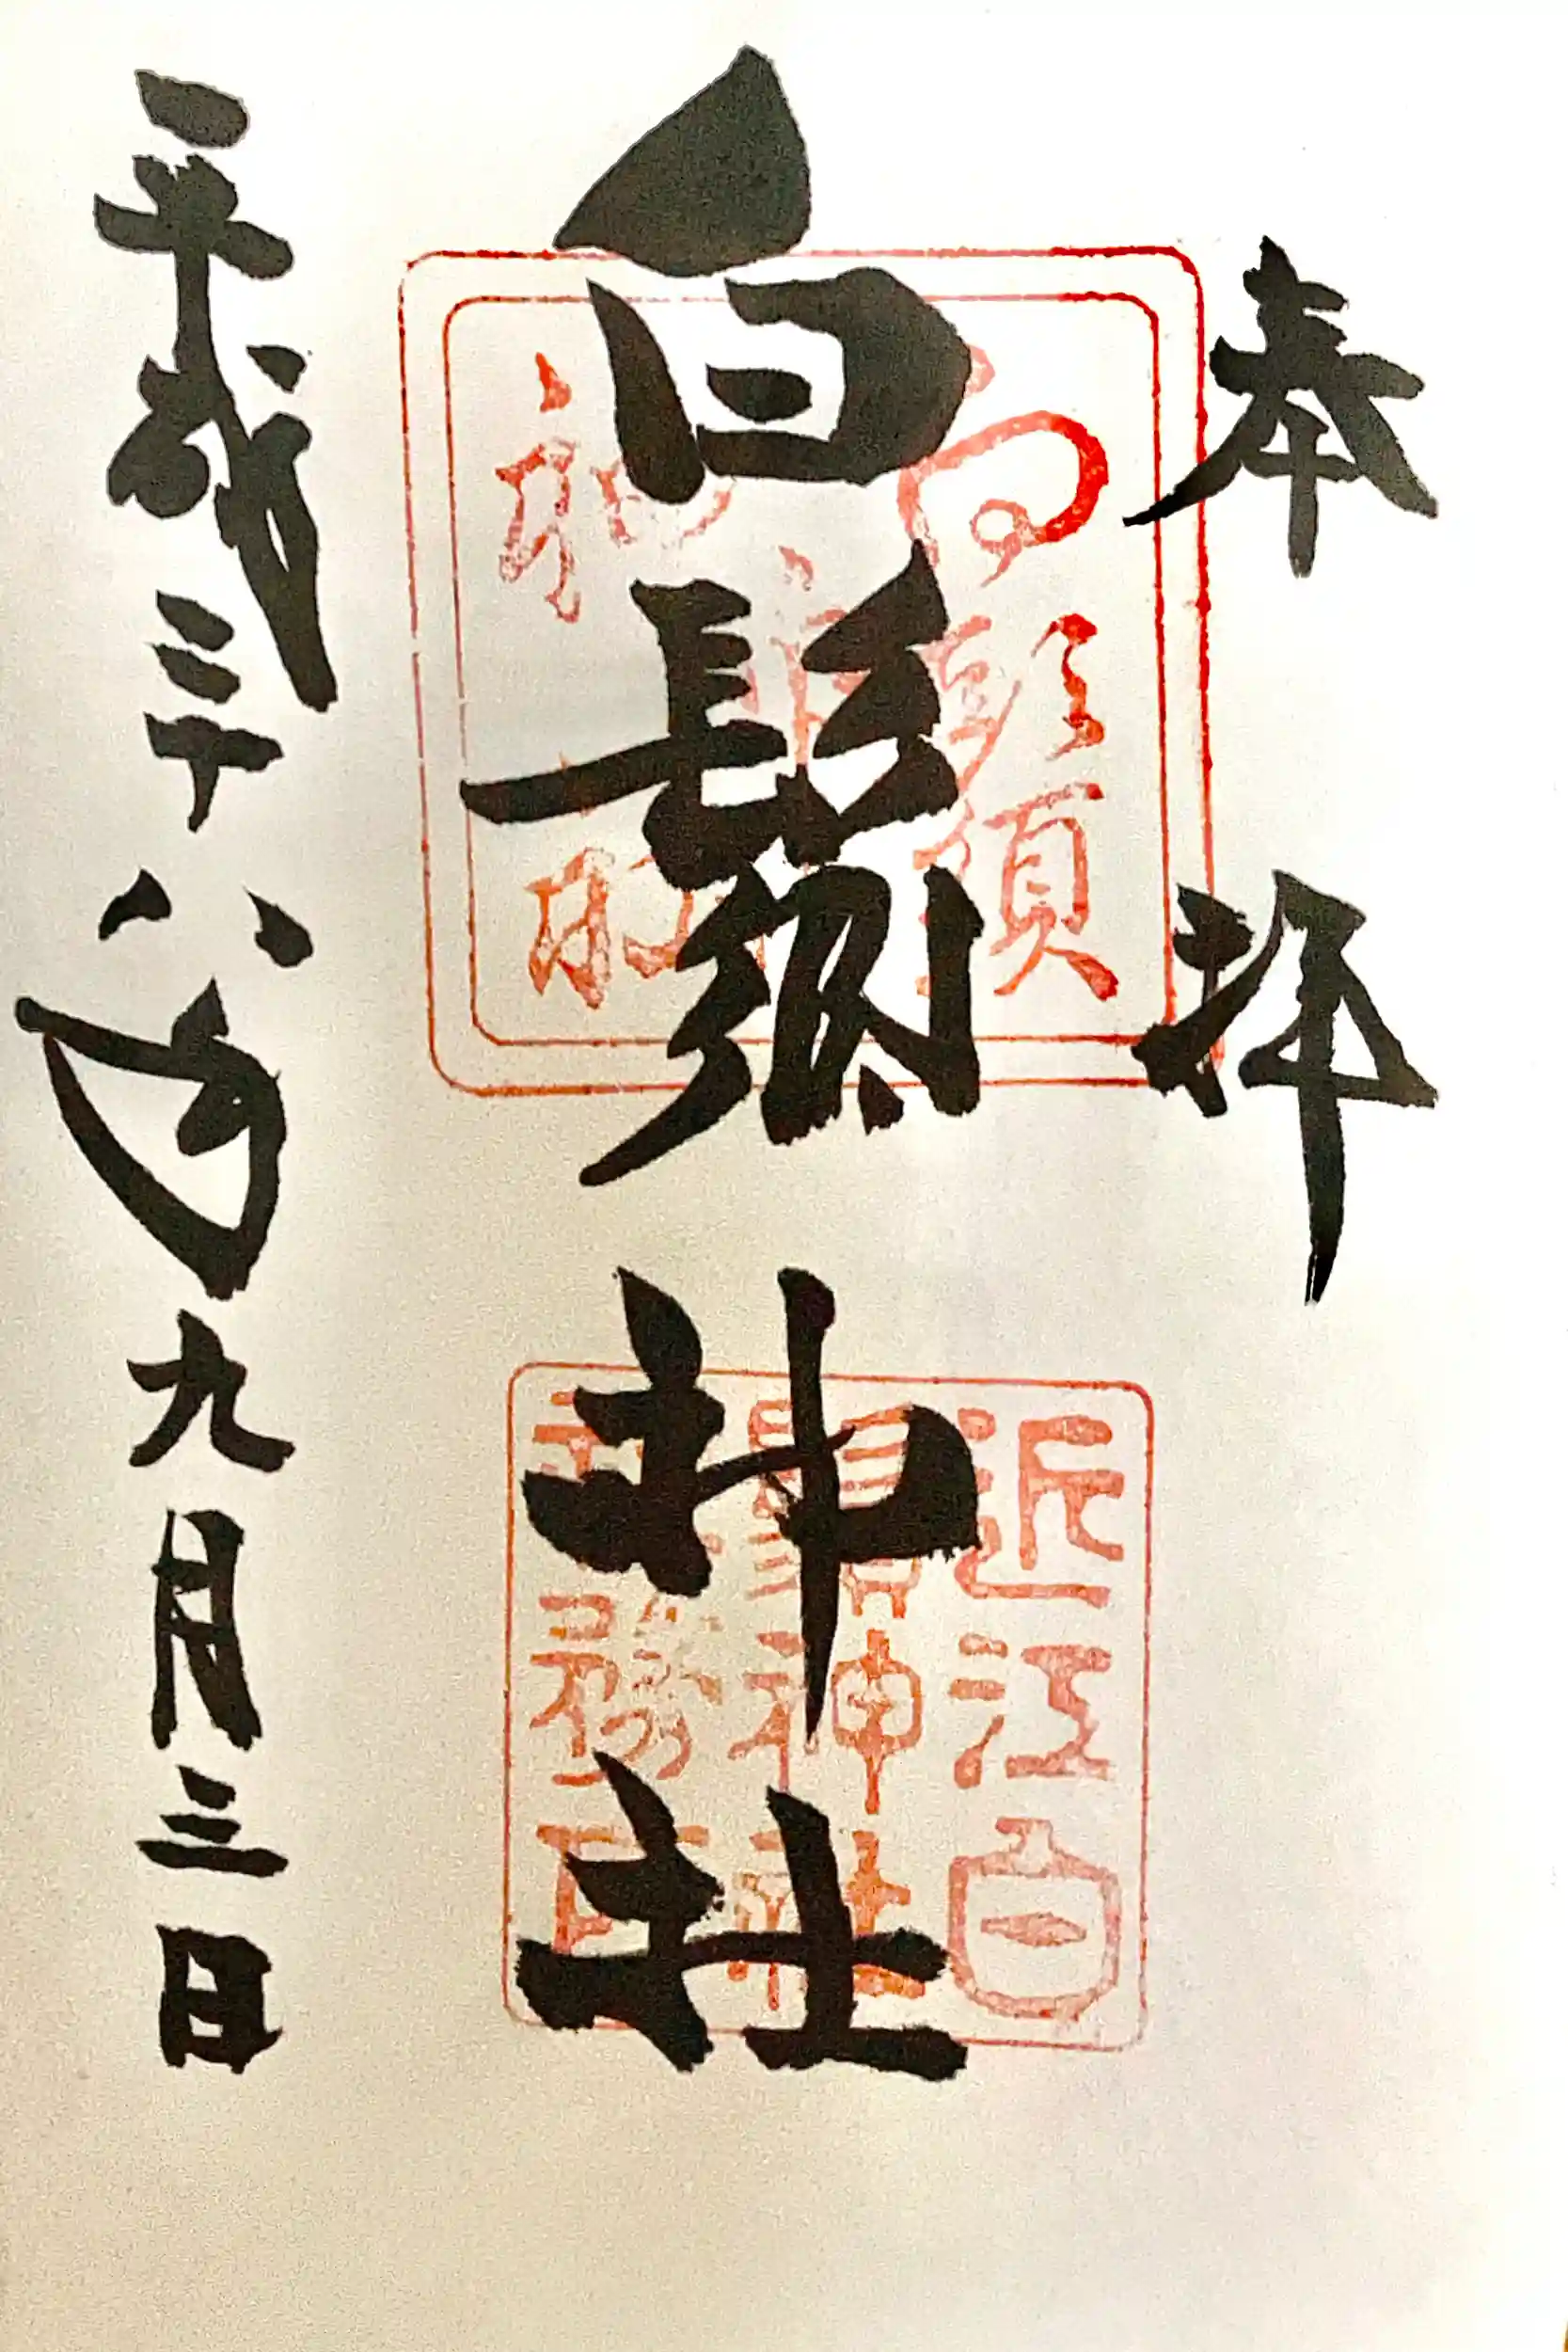 奉拝
白鬚神社
平成二十八年九月三日
白鬚
近江白
鬚神社
社務所